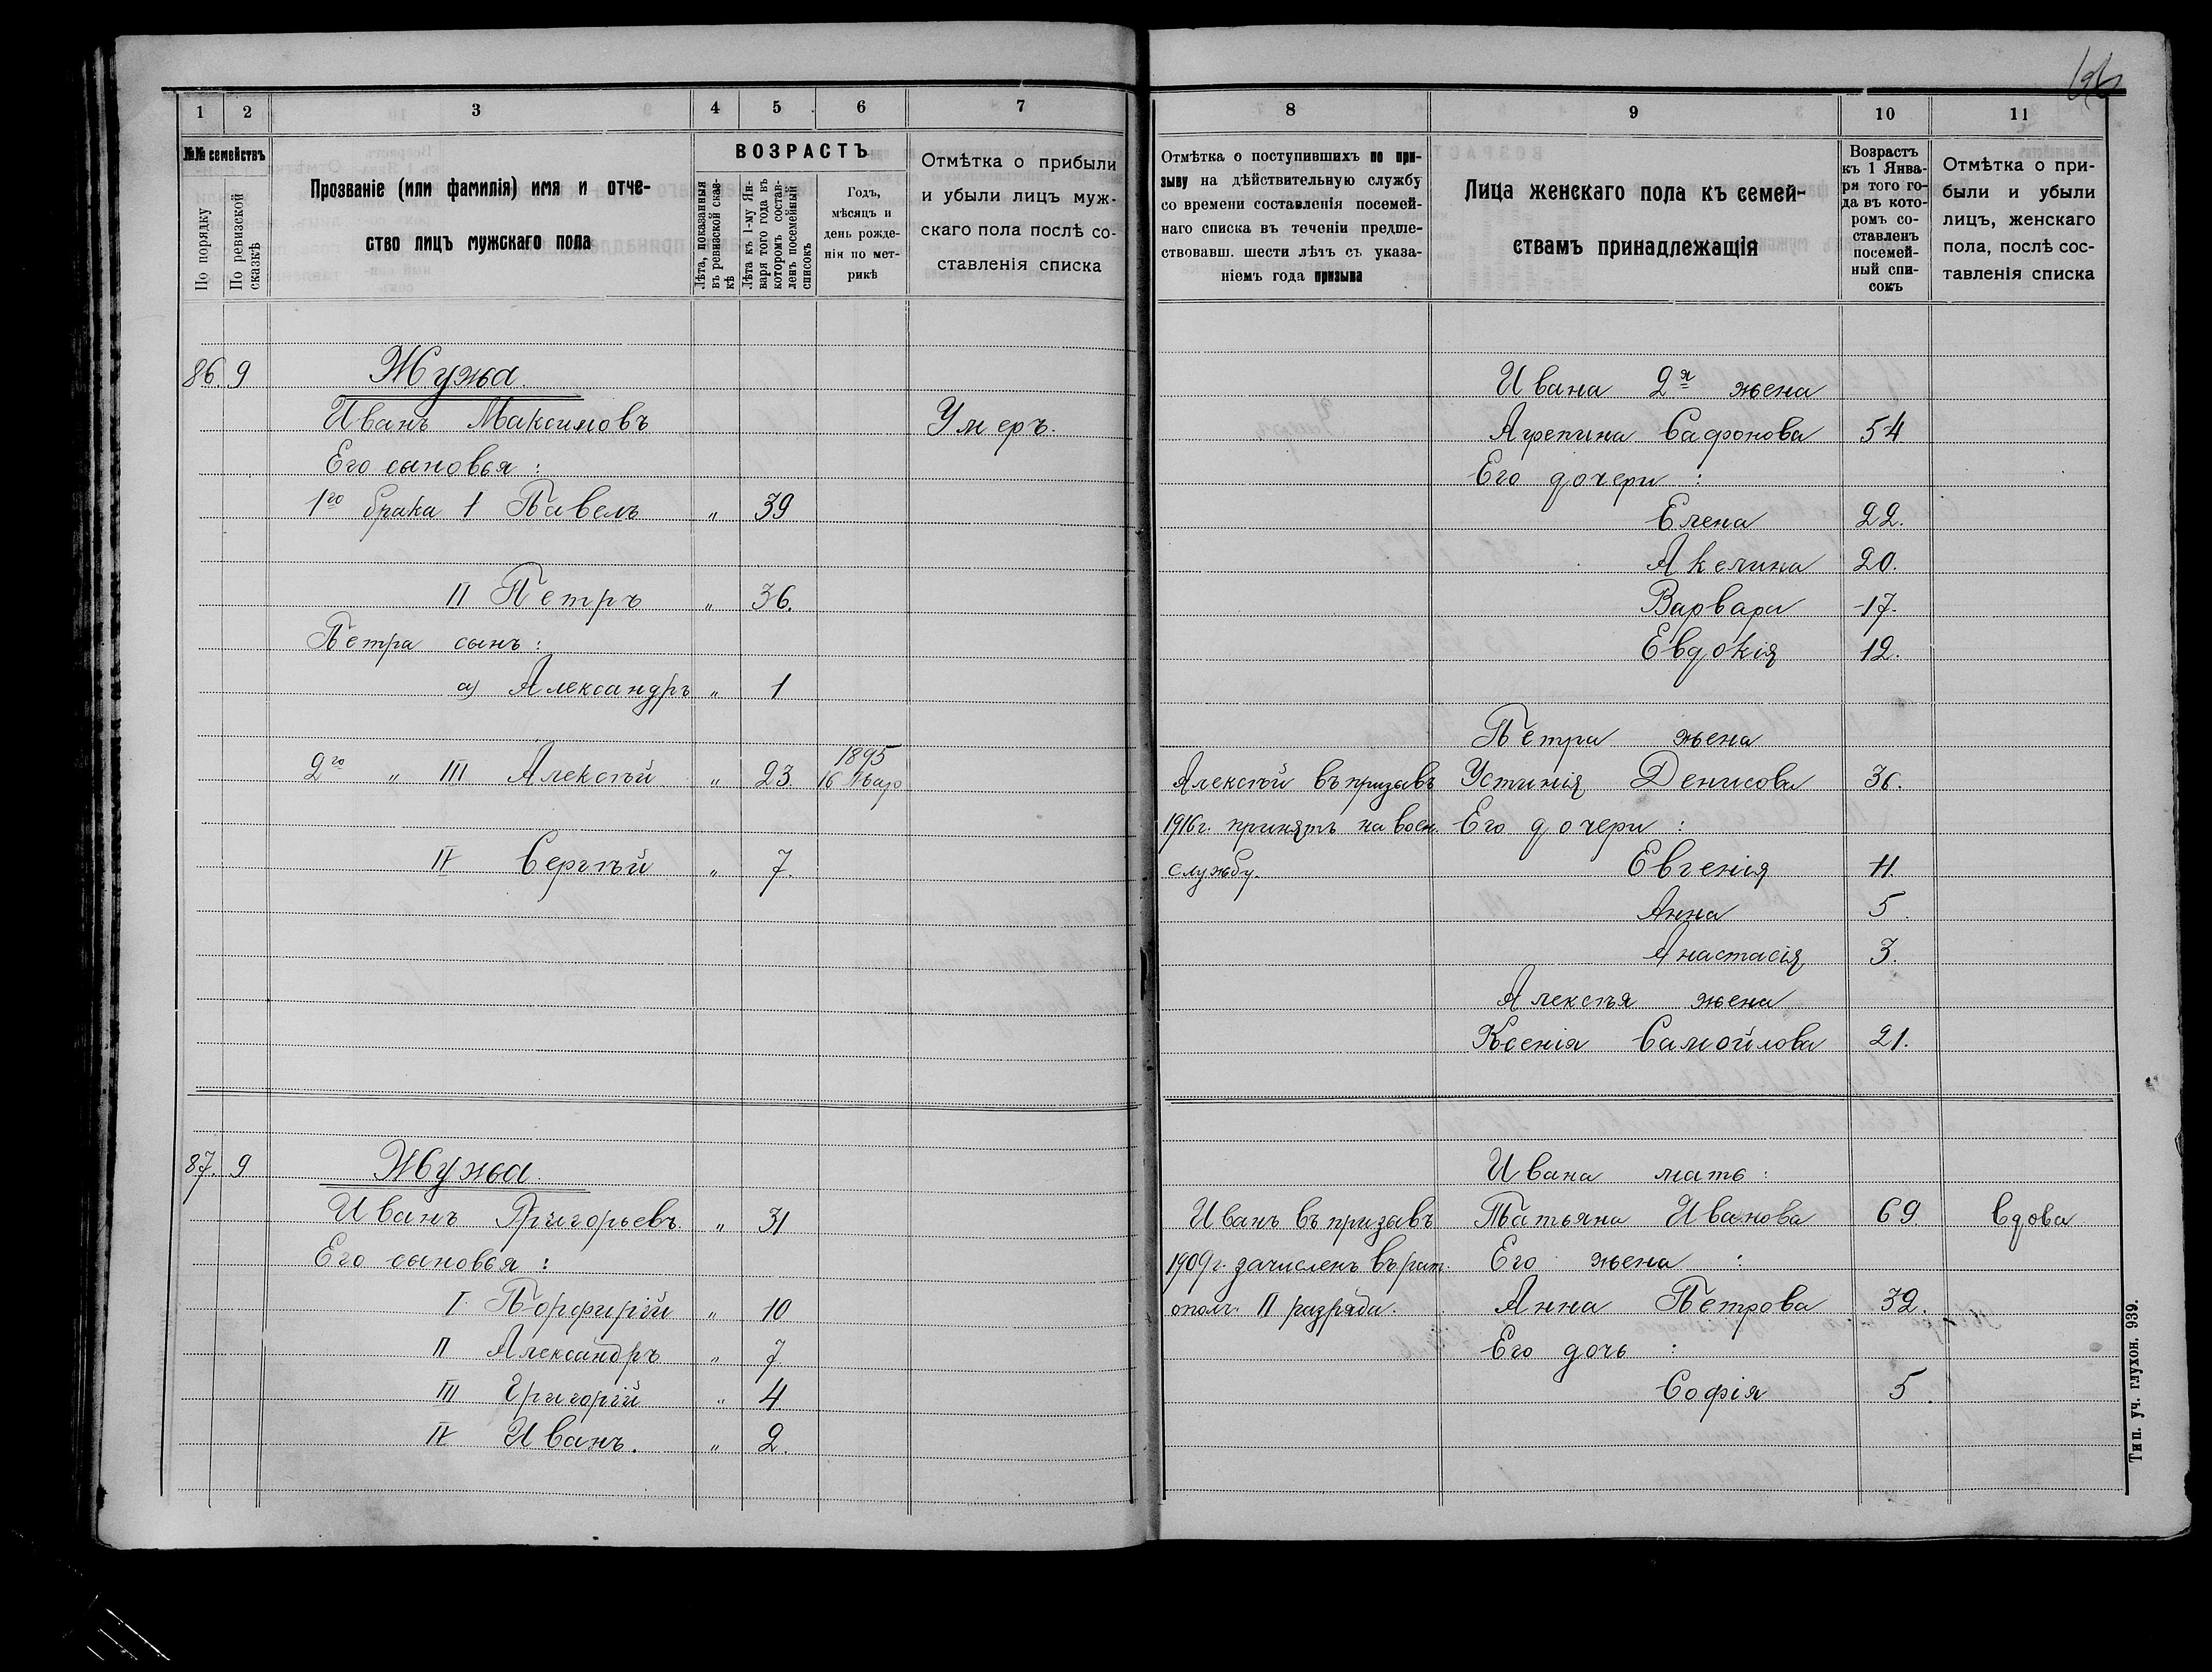 1 2 3 4 5 6 7
№№ семействъ
По порядку
По ревизской сказкѣ
Прозваніе (или фамилія) имя и отче-
ство лицъ мужскаго пола
ВОЗРАСТЪ
Лѣта, показанныя въ ревизской сказкѣ
Лѣта къ 1-му Января того года въ которомъ составленъ посемейный списокъ
Годъ,
мѣсяцъ и
день рожде-
нія по мет-
рикѣ
Отмѣтка о прибыли
и убыли лицъ муж-
скаго пола послѣ со-
ставленія списка
86. 9 Жужа.
Иванъ Максимовъ Умеръ.
Его сыновья:
1го брака 1 Павелъ " 39
II Петръ " 36.
Петра сынъ:
а) Александръ " 1
1895
2го " III Алексѣй " 23. 16
IV Сергѣй " 7.
87. 9 Жужа.
Иванъ Григорьевъ " 31
Его сыновья:
I. Порфирій " 10
II Александръ " 7
III Григорій " 4
IV Иванъ. " 2.
8 9 10 11
Отмѣтка о поступившихъ по при-
зыву на дѣйствительную службу
со времени составленія посемей-
наго списка въ теченіи предше-
ствовавш. шести лѣтъ съ указа-
ніемъ года призыва
Лица женскаго пола къ семей-
ствамъ принадлежащія
Возрастъ
къ 1 Янва-
ря того го-
да въ кото-
ромъ со-
ставленъ
посемей-
ный спи-
сокъ
Отмѣтка о при-
были и убыли
лицъ, женскаго
пола, послѣ сос-
тавленія списка
Ивана 2я жена
Агрепина Сафонова 54
Его дочери:
Елена 22.
Акелина 20.
Варвара 17.
Евдокія 12.
Петра жена
Алексѣй въ призывъ Устинія Денисова 36.
1916 г. принятъ на воен. Его дочери:
службу. Евгенія 11.
Анна 5.
Анастасія 3.
Алексѣя жена
Ксенія Самойлова 21.
Ивана мать:
Иванъ въ призывъ Татьяна Иванова 69 вдова
1909 г. зачисленъ въ рат. Его жена:
ополч. II разряда. Анна Петрова 32.
Его дочь:
Софія 5.
Тип. уч. глухон. 939.